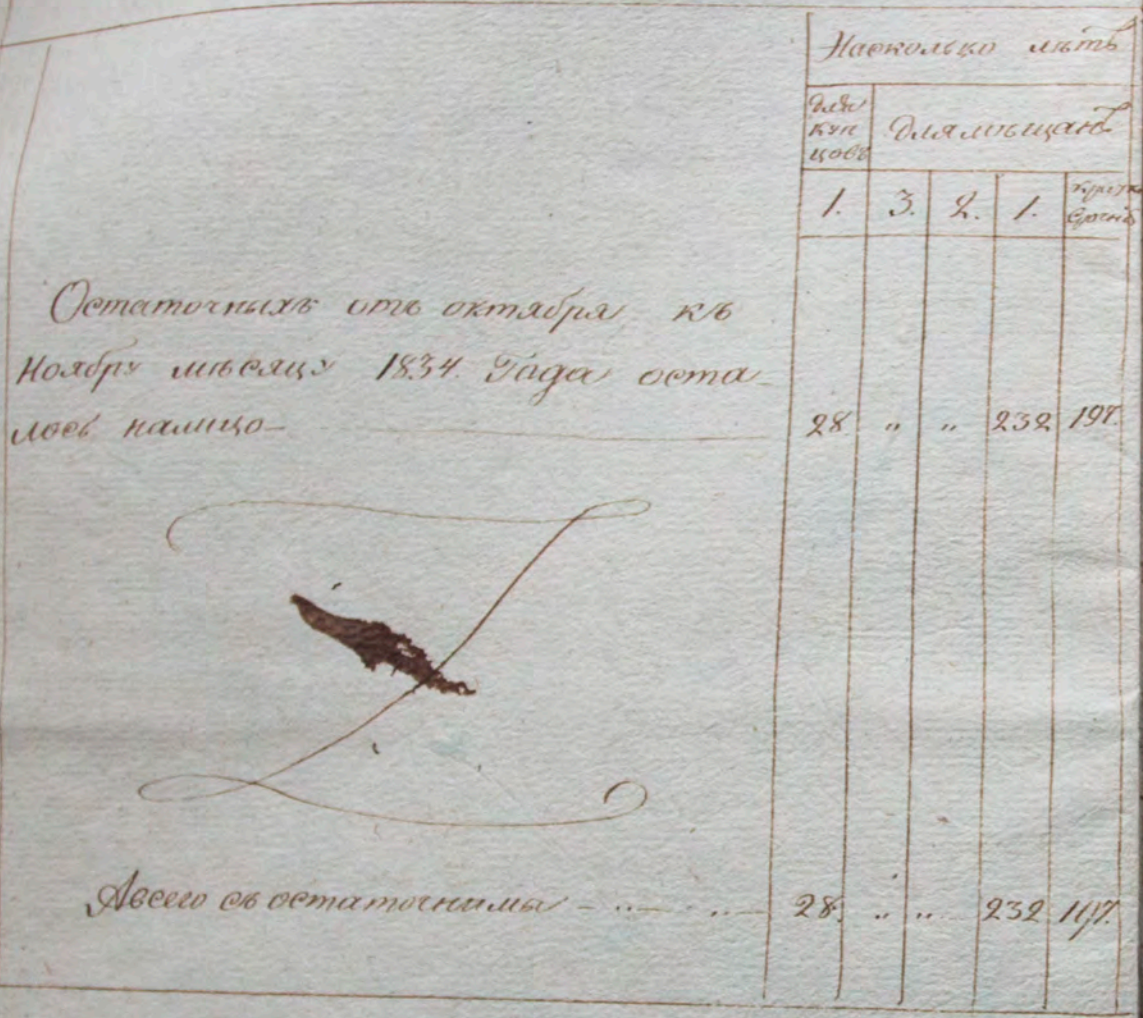 Насколько лѣтъ
для
куп
цовъ
для мѣщанъ
1. 3. 2. 1. кратко
срочн
Остаточныхъ отъ октября къ
ноябрю мѣсяцу 1834. Года оста
лось налицо 28. " " 232 197.
А всего съ остаточными 28. " " 232 197.